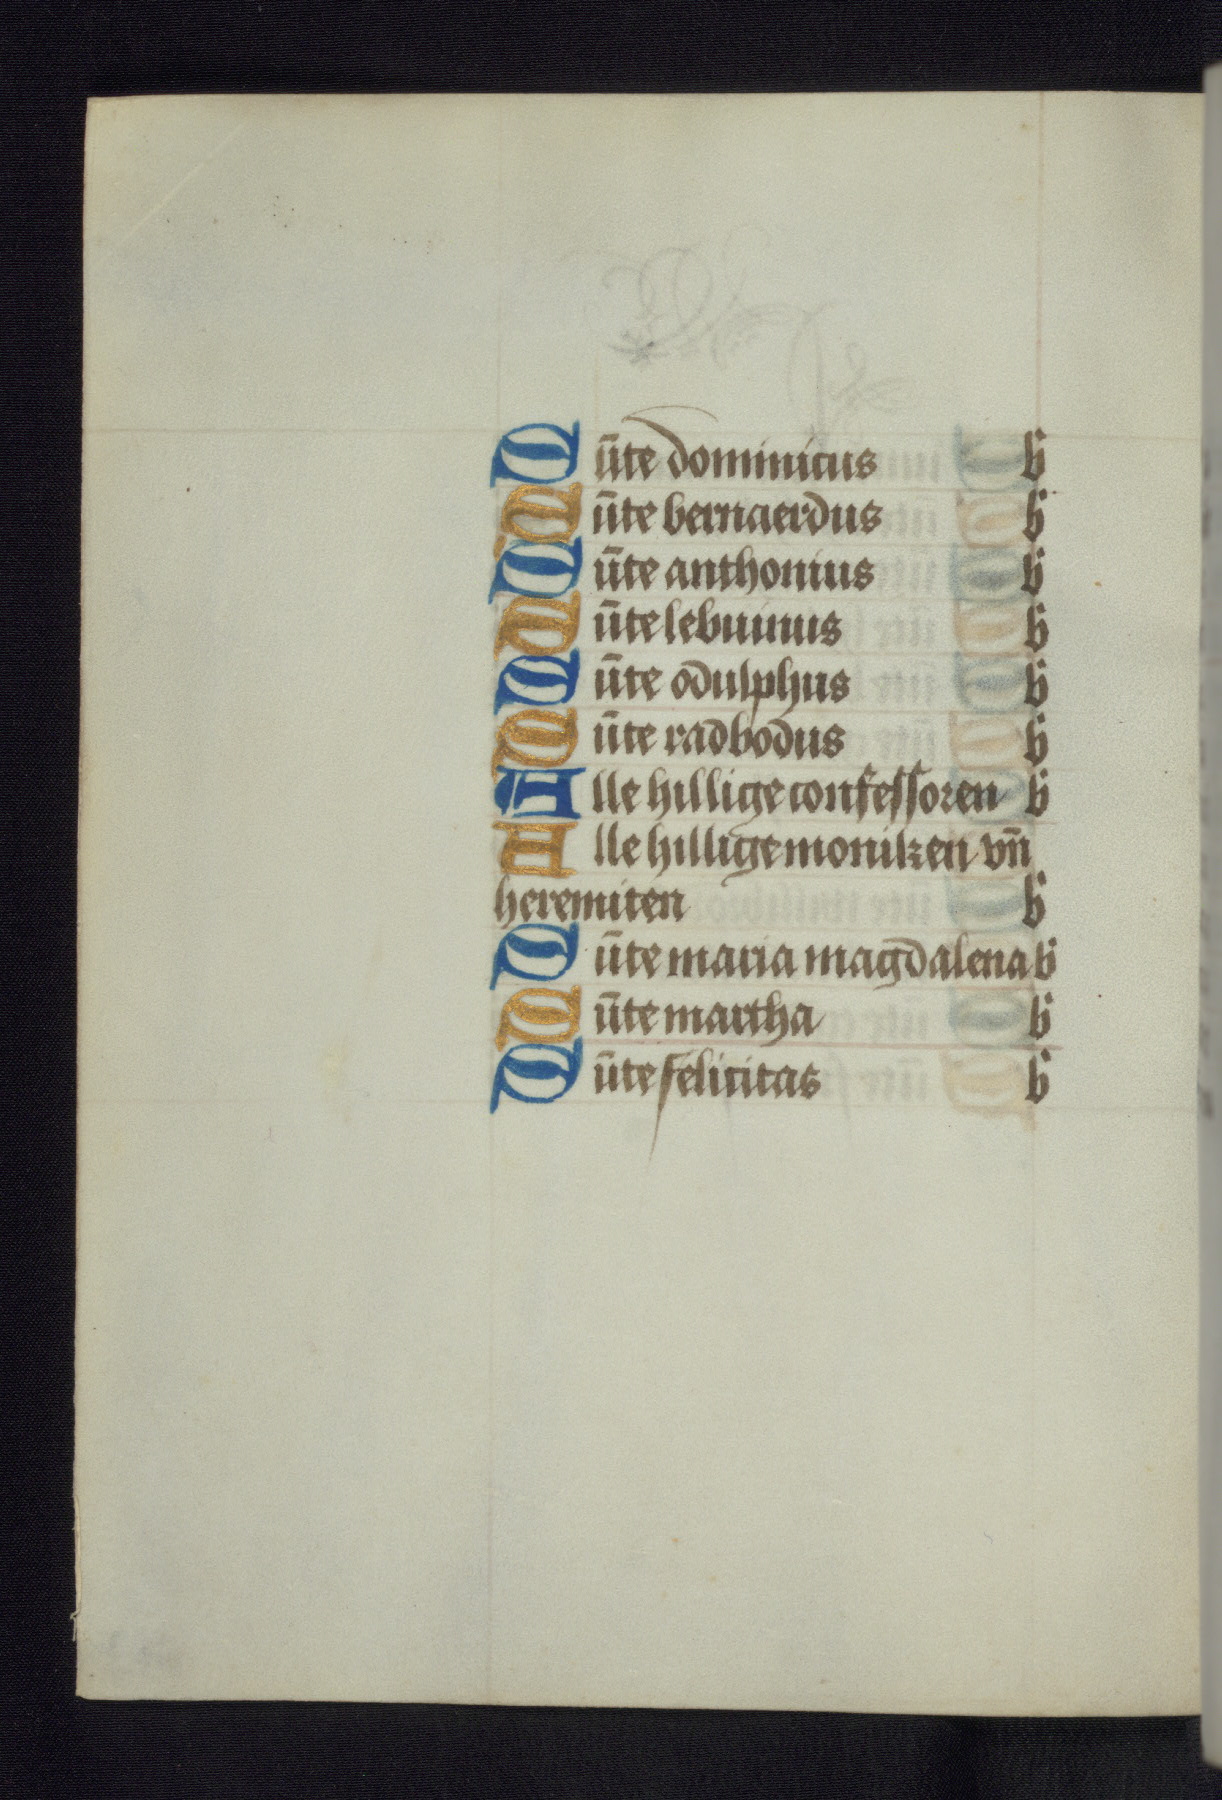 Sūte dominicus b
Sūte bernaerdus b
Sūte anthonius b
Sūte lebuinus b
Sūte odulphus b
Sūte radbodus b
Alle hillige confessoren b
Alle hillige moniken vn̄
heremiten b
Sūte maria magdalena b
Sūte martha b
Sūte felicitas b